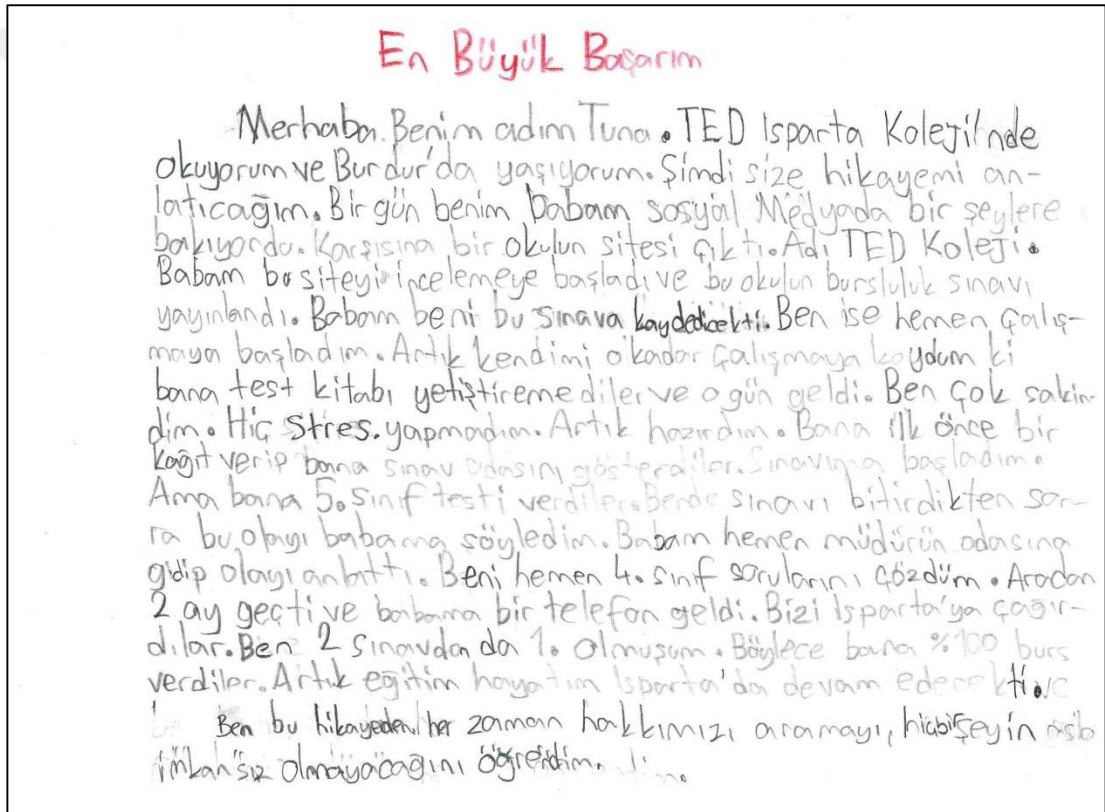 En Büyük Başarım
Merhaba. Benim adım Tuna. TED Isparta Koleji'nde
okuyorum ve Burdur'da yaşıyorum. Şimdi size hikayemi an-
latıcağım. Bir gün benim babam sosyal Medyada bir şeylere
bakıyordu. Karşısına bir okulun sitesi çıktı. Adı TED Koleji.
Babam bu siteyi incelemeye başladı ve bu okulun bursluluk sınavı
yayınlandı. Babam beni bu sınava kaydedicekti. Ben ise hemen çalış-
maya başladım. Artık kendimi o kadar çalışmaya koydum ki
bana test kitabı yetiştiremediler ve o gün geldi. Ben çok sakin-
dim. Hiç stres. yapmadım. Artık hazırdım. Bana ilk önce bir
kağıt verip bana sınav odasını gösterdiler. Sınavıma başladım.
Ama bana 5. sınıf testi verdiler. Bende sınavı bitirdikten son-
ra bu olayı babama söyledim. Babam hemen müdürün odasına
gidip olayı anlattı. Beni hemen 4. sınıf sorularını çözdüm. Aradan
2 ay geçti ve babama bir telefon geldi. Bizi Isparta'ya çağır-
dılar. Ben 2 sınavda da 1. olmuşum. Böylece bana %100 burs
verdiler. Artık eğitim hayatım Isparta'da devam edecekti.
Ben bu hikayeden her zaman hakkımızı aramayı, hiçbirşeyin asla
imkansız olmayacağını öğrendim.